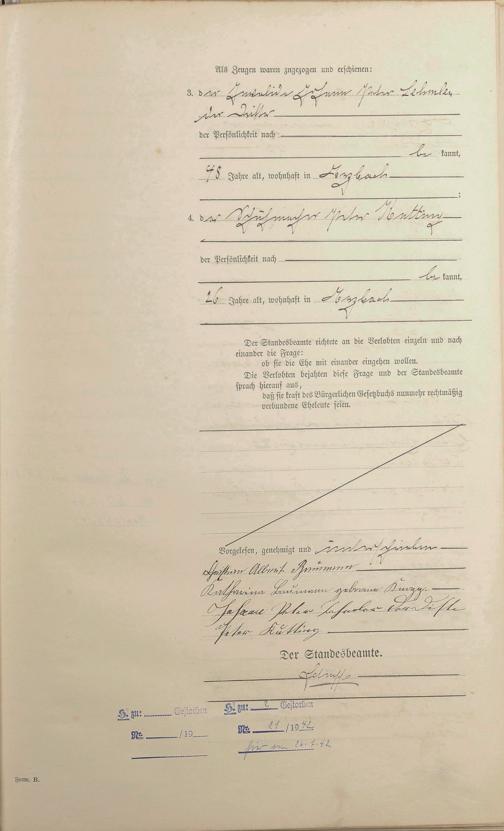 Als Zeugen waren zugezogen und erschienen:
3. der Invalide Johann Peter
der Dritte
der Persönlichkeit nach
be kannt,
48 Jahre alt, wohnhaft in
;
4. der Schuhmacher Peter
der Persönlichkeit nach
be kannt,
26 Jahre alt, wohnhaft in
Der Standesbeamte richtete an die Verlobten einzeln und nach
einander die Frage:
ob sie die Ehe mit einander eingehen wollen.
Die Verlobten bejahten diese Frage und der Standesbeamte
sprach hierauf aus,
daß sie kraft des Bürgerlichen Gesetzbuchs nunmehr rechtmäßig
verbundene Eheleute seien.
Vorgelesen, genehmigt und unterschrieben
Christian Albert Baumann
Katharina Baumann geborene
Johann Peter der Dritte
Peter
Der Standesbeamte.
H. zu: Gestorben
H. zu: 2 Gestorben
Nr. /19
Nr. 21/1942